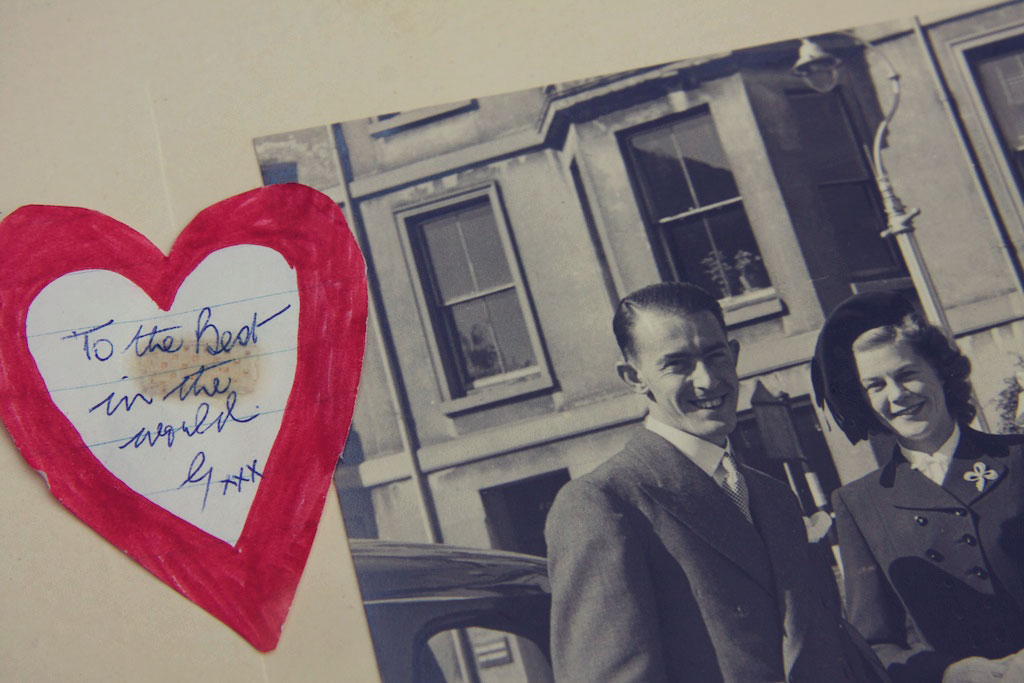 To the Best
in the
world
G xxx